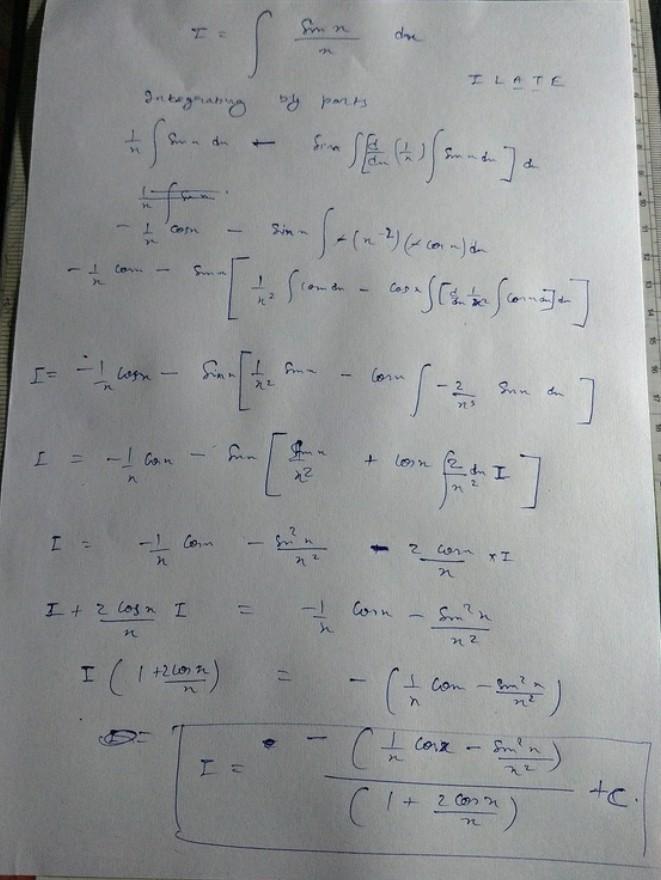 I = ∫ sin x / x dx
I L A T E
Integrating by parts
1/x ∫ sin x dx - sin x ∫ [ d/dx (1/x) ∫ sin x dx ] dx
1/x ∫ sin x
- 1/x cos x - sin x ∫ -(x^-2)(-cos x) dx
- 1/x cos x - sin x [ 1/x² ∫ cos x dx - cos x ∫ [ d/dx 1/x² ∫ cos x dx ] dx ]
I = -1/x cos x - sin x [ 1/x² sin x - cos x ∫ -2/x³ sin x dx ]
I = -1/x cos x - sin x [ sin x / x² + cos x ∫ 2/x² dx I ]
I = -1/x cos x - sin² x / x² - 2 cos x / x × I
I + 2 cos x / x I = -1/x cos x - sin² x / x²
I ( 1 + 2 cos x / x ) = - ( 1/x cos x - sin² x / x² )
I = - ( 1/x cos x - sin² x / x² ) / ( 1 + 2 cos x / x ) + C.